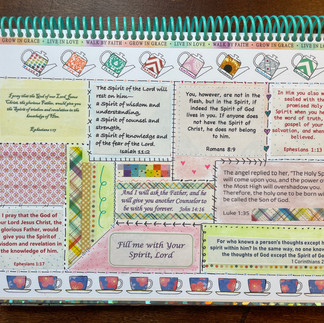 GROW IN GRACE • LIVE IN LOVE • WALK BY FAITH • GROW IN GRACE • LIVE IN LOVE • WALK BY FAITH • GROW IN GRACE
I pray that the God of our Lord Jesus
Christ, the glorious Father, would give you
the Spirit of wisdom and revelation in the
knowledge of Him.
Ephesians 1:17
The Spirit of the Lord will
rest on him—
a Spirit of wisdom and
understanding,
a Spirit of counsel and
strength,
a Spirit of knowledge and
of the fear of the Lord.
Isaiah 11:2
You, however, are not in the
flesh, but in the Spirit, if
indeed the Spirit of God
lives in you. If anyone does
not have the Spirit of
Christ, he does not belong
to him.
Romans 8:9
In Him you also w
sealed with the
promised Holy
Spirit when you
the word of truth,
gospel of
salvation, and when
believed.
Ephesians 1:13
And I will ask the Father, and he
will give you another Counselor to
be with you forever. John 14:16
The angel replied to her, "The Holy S
will come upon you, and the power o
the Most High will overshadow you.
Therefore, the holy one to be born wi
be called the Son of God.
Luke 1:35
I pray that the God of
our Lord Jesus Christ, the
glorious Father, would
give you the Spirit of
wisdom and revelation in
the knowledge of him.
Ephesians 1:17
Fill me with Your
Spirit, Lord
For who knows a person's thoughts except h
spirit within him? In the same way, no one know
the thoughts of God except the Spirit of G
1 Corinthians 2